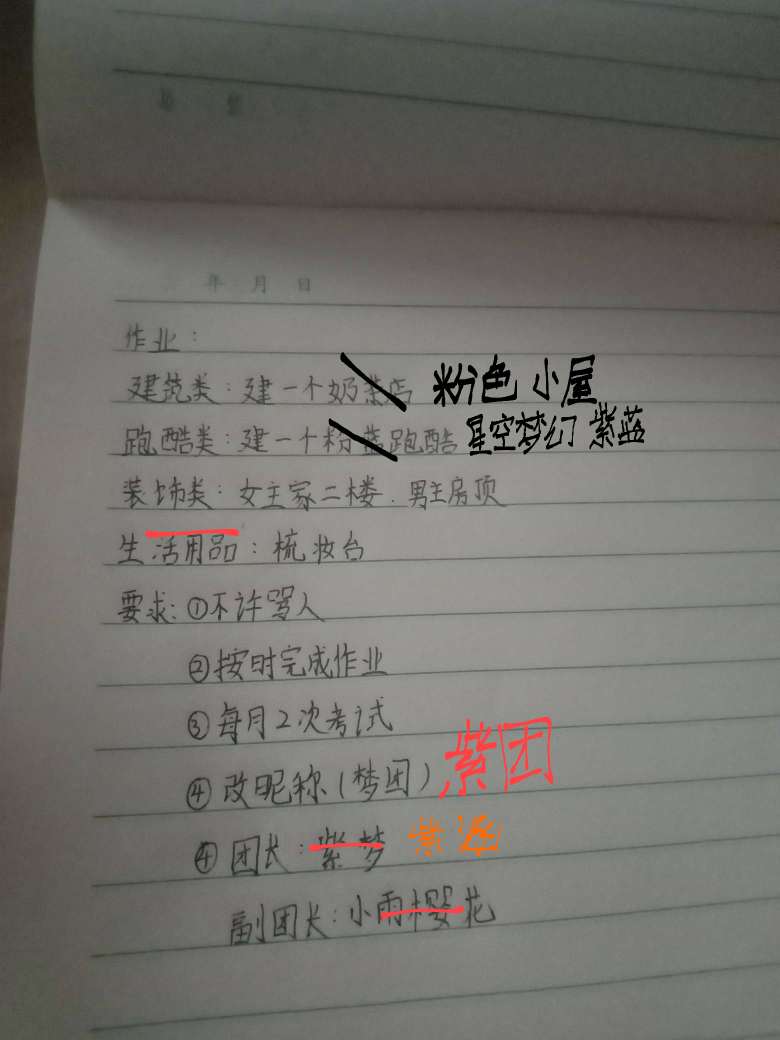 年 月 日
作业：
建筑类：建一个奶茶店 粉色小屋
跑酷类：建一个粉蓝跑酷 星空梦幻 紫蓝
装饰类：女主家二楼．男主房顶
生活用品：梳妆台
要求：①不许骂人
②按时完成作业
③每月2次考试
④改昵称（梦团）紫团
④团长：紫梦 紫
副团长：小雨樱花